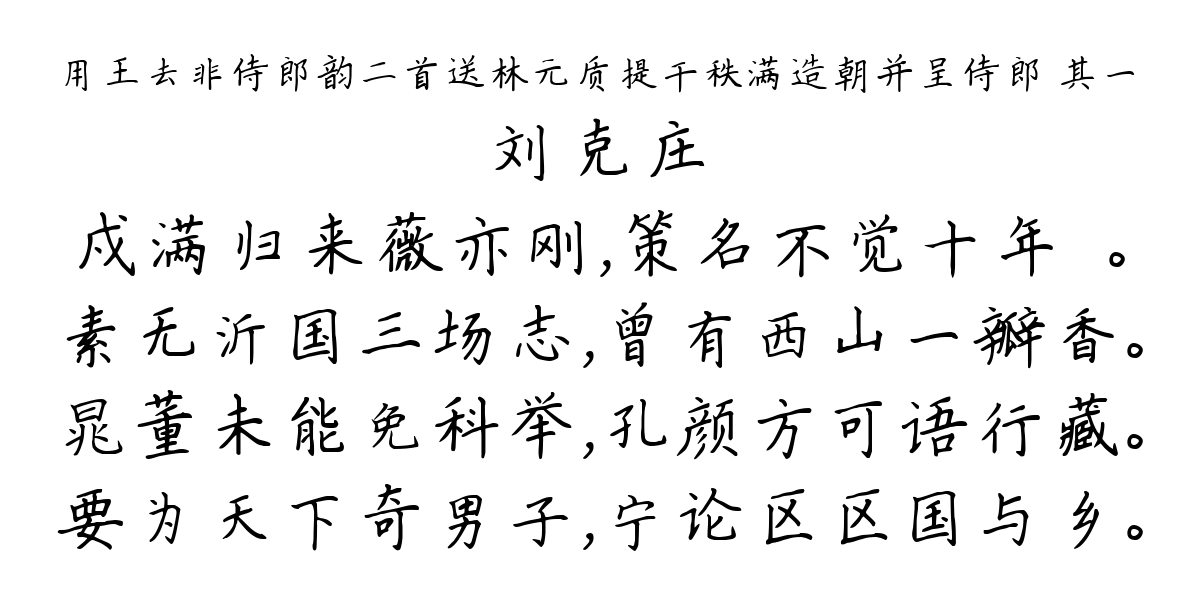 用王去非侍郎韵二首送林元质提干秩满造朝并呈侍郎 其一
刘克庄
戍满归来薇亦刚,策名不觉十年 。
素无沂国三场志,曾有西山一瓣香。
晁董未能免科举,孔颜方可语行藏。
要为天下奇男子,宁论区区国与乡。